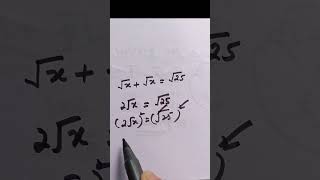 √x + √x = √25
2√x = √25
(2√x)² = (√25)²
2√x